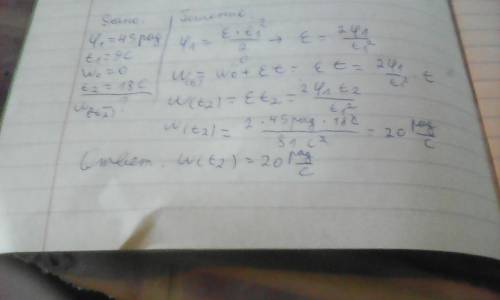 Дано:
φ₁ = 45 рад
t₁ = 9с
ω₀ = 0
t₂ = 18с
ω(t₂) - ?
Решение
φ₁ = ε·t₁²/2 → ε = 2φ₁/t₁²
ω(t) = ω₀ + εt = εt = 2φ₁/t₁² · t
ω(t₂) = εt₂ = 2φ₁t₂/t₁²
ω(t₂) = 2·45рад·18с/81с² = 20 рад/с
Ответ: ω(t₂) = 20 рад/с